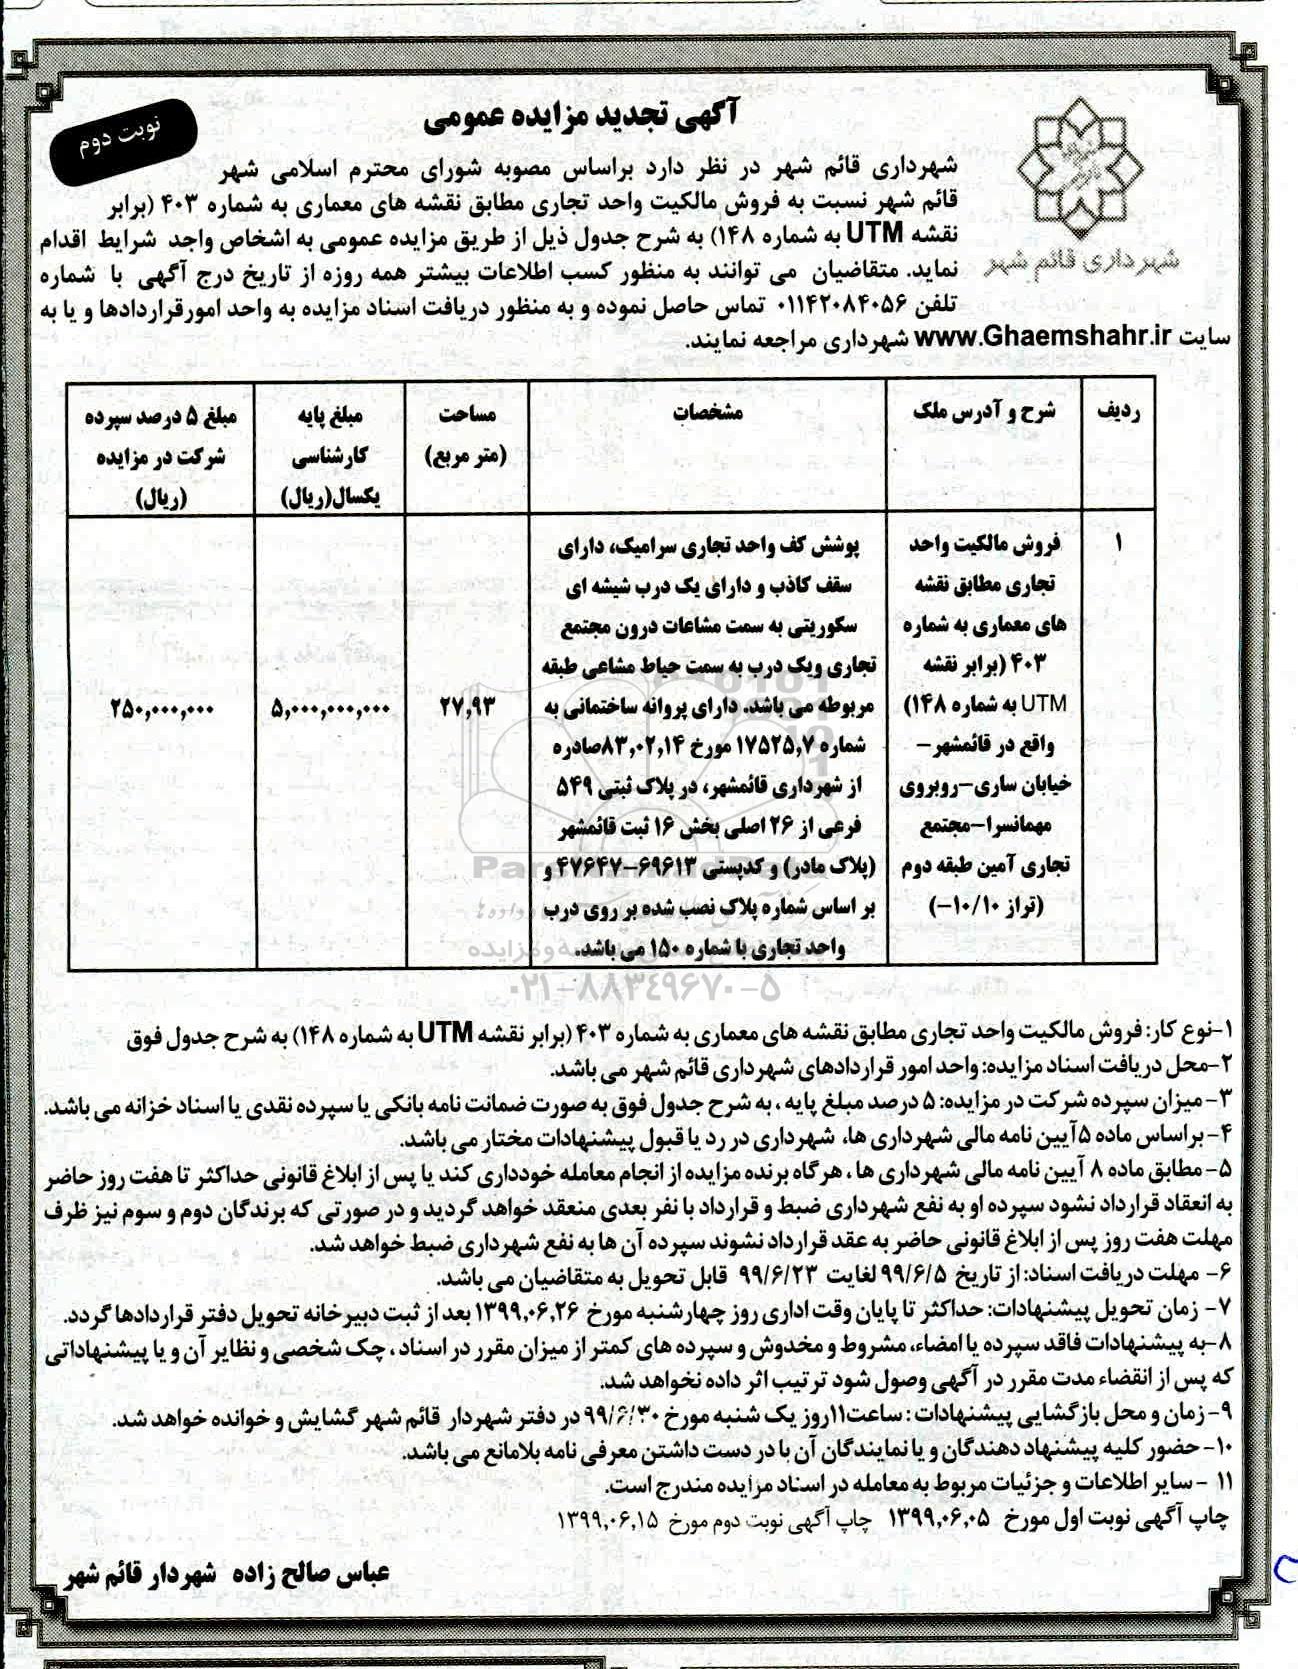 آگهی تجدید مزایده عمومی
نوبت دوم
شهرداری قائم شهر
شهرداری قائم شهر در نظر دارد براساس مصوبه شورای محترم اسلامی شهر
قائم شهر نسبت به فروش مالکیت واحد تجاری مطابق نقشه های معماری به شماره ۴۰۳ (برابر
نقشه UTM به شماره ۱۴۸) به شرح جدول ذیل از طریق مزایده عمومی به اشخاص واجد شرایط اقدام
نماید. متقاضیان می توانند به منظور کسب اطلاعات بیشتر همه روزه از تاریخ درج آگهی با شماره
تلفن ۰۱۱۴۲۰۸۴۰۵۶ تماس حاصل نموده و به منظور دریافت اسناد مزایده به واحد امورقراردادها و یا به
سایت www.Ghaemshahr.ir شهرداری مراجعه نمایند.
ردیف
شرح و آدرس ملک
مشخصات
مساحت
(متر مربع)
مبلغ پایه
کارشناسی
یکسال(ریال)
مبلغ ۵ درصد سپرده
شرکت در مزایده
(ریال)
۱
فروش مالکیت واحد
تجاری مطابق نقشه
های معماری به شماره
۴۰۳ (برابر نقشه
UTM به شماره ۱۴۸)
واقع در قائمشهر-
خیابان ساری-روبروی
مهمانسرا-مجتمع
تجاری آمین طبقه دوم
(تراز ۱۰/۱۰-)
پوشش کف واحد تجاری سرامیک، دارای
سقف کاذب و دارای یک درب شیشه ای
سکوریتی به سمت مشاعات درون مجتمع
تجاری ویک درب به سمت حیاط مشاعی طبقه
مربوطه می باشد. دارای پروانه ساختمانی به
شماره ۱۷۵۲۵٫۷ مورخ ۸۳٫۰۲٫۱۴صادره
از شهرداری قائمشهر، در پلاک ثبتی ۵۴۹
فرعی از ۲۶ اصلی بخش ۱۶ ثبت قائمشهر
(پلاک مادر) و کدپستی ۶۹۶۱۳-۴۷۶۴۷ و
بر اساس شماره پلاک نصب شده بر روی درب
واحد تجاری با شماره ۱۵۰ می باشد.
۲۷٫۹۳
۵,۰۰۰,۰۰۰,۰۰۰
۲۵۰,۰۰۰,۰۰۰
۰۲۱-۸۸۳۴۹۶۷۰-۵
۱-نوع کار: فروش مالکیت واحد تجاری مطابق نقشه های معماری به شماره ۴۰۳ (برابر نقشه UTM به شماره ۱۴۸) به شرح جدول فوق
۲-محل دریافت اسناد مزایده: واحد امور قراردادهای شهرداری قائم شهر می باشد.
۳- میزان سپرده شرکت در مزایده: ۵ درصد مبلغ پایه ، به شرح جدول فوق به صورت ضمانت نامه بانکی یا سپرده نقدی یا اسناد خزانه می باشد.
۴- براساس ماده ۵آیین نامه مالی شهرداری ها، شهرداری در رد یا قبول پیشنهادات مختار می باشد.
۵- مطابق ماده ۸ آیین نامه مالی شهرداری ها ، هرگاه برنده مزایده از انجام معامله خودداری کند یا پس از ابلاغ قانونی حداکثر تا هفت روز حاضر
به انعقاد قرارداد نشود سپرده او به نفع شهرداری ضبط و قرارداد با نفر بعدی منعقد خواهد گردید و در صورتی که برندگان دوم و سوم نیز ظرف
مهلت هفت روز پس از ابلاغ قانونی حاضر به عقد قرارداد نشوند سپرده آن ها به نفع شهرداری ضبط خواهد شد.
۶- مهلت دریافت اسناد: از تاریخ ۹۹/۶/۵ لغایت ۹۹/۶/۲۳ قابل تحویل به متقاضیان می باشد.
۷- زمان تحویل پیشنهادات: حداکثر تا پایان وقت اداری روز چهارشنبه مورخ ۱۳۹۹٫۰۶٫۲۶ بعد از ثبت دبیرخانه تحویل دفتر قراردادها گردد.
۸-به پیشنهادات فاقد سپرده یا امضاء، مشروط و مخدوش و سپرده های کمتر از میزان مقرر در اسناد ، چک شخصی و نظایر آن و یا پیشنهاداتی
که پس از انقضاء مدت مقرر در آگهی وصول شود ترتیب اثر داده نخواهد شد.
۹- زمان و محل بازگشایی پیشنهادات : ساعت۱۱روز یک شنبه مورخ ۹۹/۶/۳۰ در دفتر شهردار قائم شهر گشایش و خوانده خواهد شد.
۱۰- حضور کلیه پیشنهاد دهندگان و یا نمایندگان آن با در دست داشتن معرفی نامه بلامانع می باشد.
۱۱ - سایر اطلاعات و جزئیات مربوط به معامله در اسناد مزایده مندرج است.
چاپ آگهی نوبت اول مورخ ۱۳۹۹٫۰۶٫۰۵ چاپ آگهی نوبت دوم مورخ ۱۳۹۹٫۰۶٫۱۵
عباس صالح زاده شهردار قائم شهر